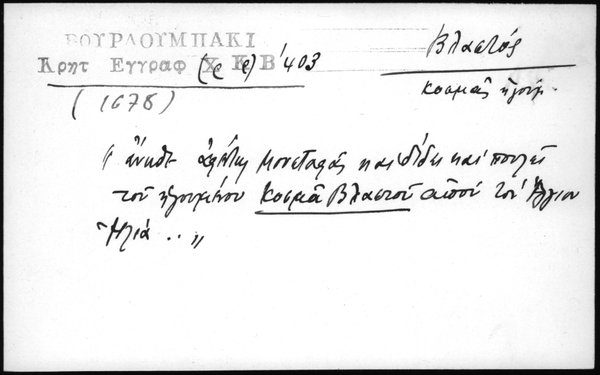 ΒΟΥΡΔΟΥΜΠΑΚΙ
Κρητ Εγγραφ Χ Κ Β (ϲ ϲ) '403
(1678)
Βλαστός
Κοσμᾶς ἡγούμ.
" ἄνωθε ἀφέντης Μουσταφᾶς καὶ δίδει καὶ πουλεῖ
τοῦ ἡγουμένου Κοσμᾶ Βλαστοῦ ἀπού τον Ἅγιον
Ἠλιά .. "